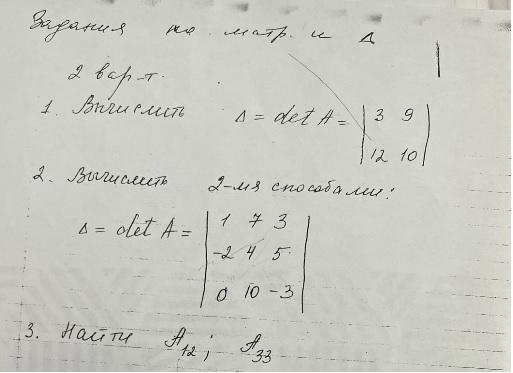 Задания на матр. и Δ
2 вар-т.
1. Вычислить Δ = det A = | 3 9 |
| 12 10 |
2. Вычислить 2-мя способами:
Δ = det A = | 1 7 3 |
| -2 4 5 |
| 0 10 -3 |
3. Найти A₁₂; A₃₃